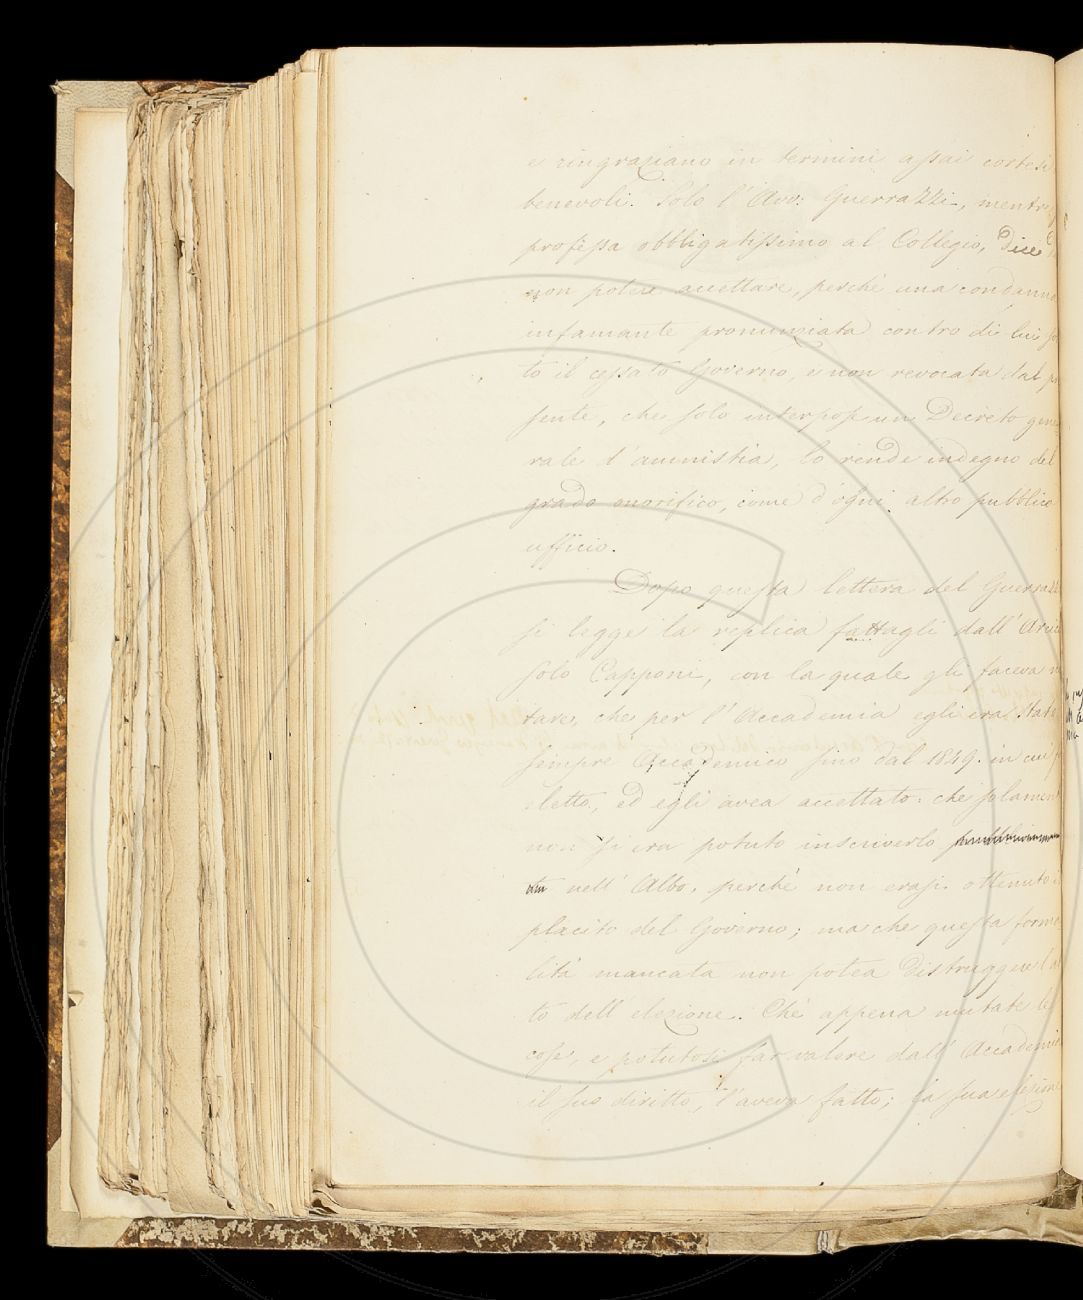 e ringraziano in termini assai cortesi
benevoli. Solo l'Avv: Guerrazzi, mentre
professa obbligatissimo al Collegio, dice
non potere accettare, perchè una condanna
infamante pronunziata contro di lui so
to il cessato Governo, e non revocata dal p
sente, che solo interpose un Decreto gene
rale d'amnistia, lo rende indegno del
grado onorifico, come d'ogni altro pubblico
ufficio.
Dopo questa lettera del Guerrazz
si legge la replica fattagli dall'Arci
solo Capponi, con la quale gli faceva n
tare, che per l'Accademia egli era stat
sempre Accademico fino dal 1849. in cui f
eletto, ed egli avea accettato: che solamen
non si era potuto inscriverlo
nell'Albo, perchè non erasi ottenuto i
placito del Governo; ma che questa forma
lità mancata non potea distruggere l'a
to dell'elezione. Chè appena mutate le
cose, e potutosi far valere dall'Accademi
il suo diritto, l'aveva fatto; la sua elezione